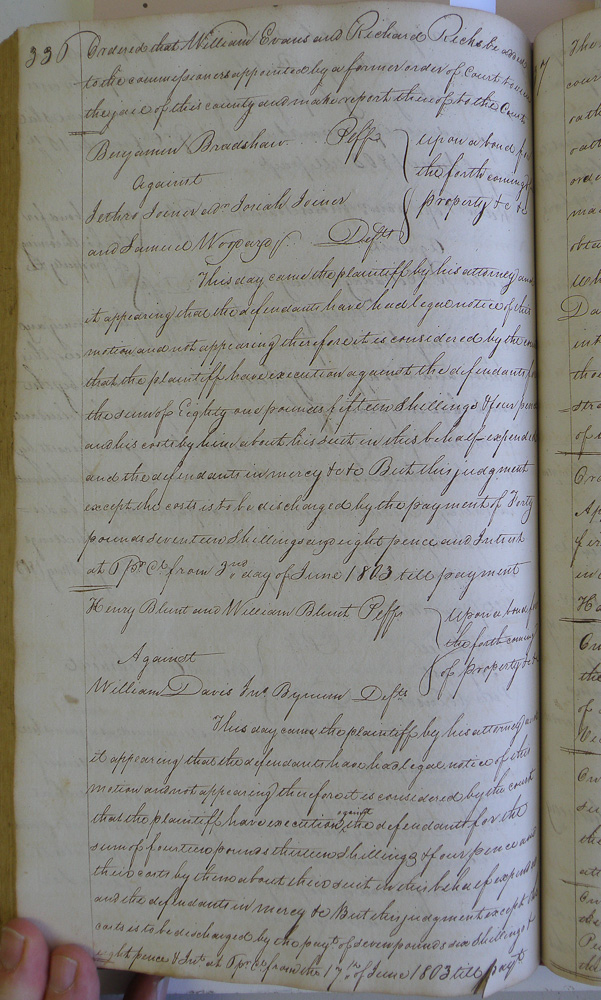 336 Ordered that William Evans and Richard Ricks be added
to the commissioners appointed by a former order of Court to view
the jail of this county and make report thereof to the Court
Benjamin Bradshaw Plff
Against
Jethro Joiner Josiah Joiner
and Samuel Woodard Defts
Upon a bond for
the forthcoming
property &c &c
This day came the plaintiff by his attorney and
it appearing that the defendants have had legal notice of this
motion and not appearing therefore it is considered by the court
that the plaintiff have execution against the defendants for
the sum of Eighty one pounds fifteen shillings & four pence
and his costs by him about his suit in this behalf expended
and the defendants in mercy &c &c But this judgment
except the costs is to be discharged by the payment of Forty
pounds seventeen shillings and eight pence and Interest
at pr Ct from 3nd day of June 1803 till payment
Henry Blunt and William Blunt Plffs
Against
William Davis Jno Bynum Defts
Upon a bond for
the forthcoming
of property &c &c
This day came the plaintiff by his attorney and
it appearing that the defendants have had legal notice of this
motion and not appearing therefore it is considered by the court
that the plaintiff have execution against the defendants for the
sum of fourteen pounds thirteen shillings & four pence and
their costs by them about their suit in this behalf expended
and the defendants in mercy &c But this judgment except the
costs is to be discharged by the payt of seven pounds six shillings &
eight pence & Int at pr Ct from the 17th of June 1803 till payt